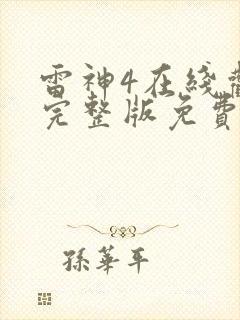 雷神4在綫觀
完整版免費
孫華平